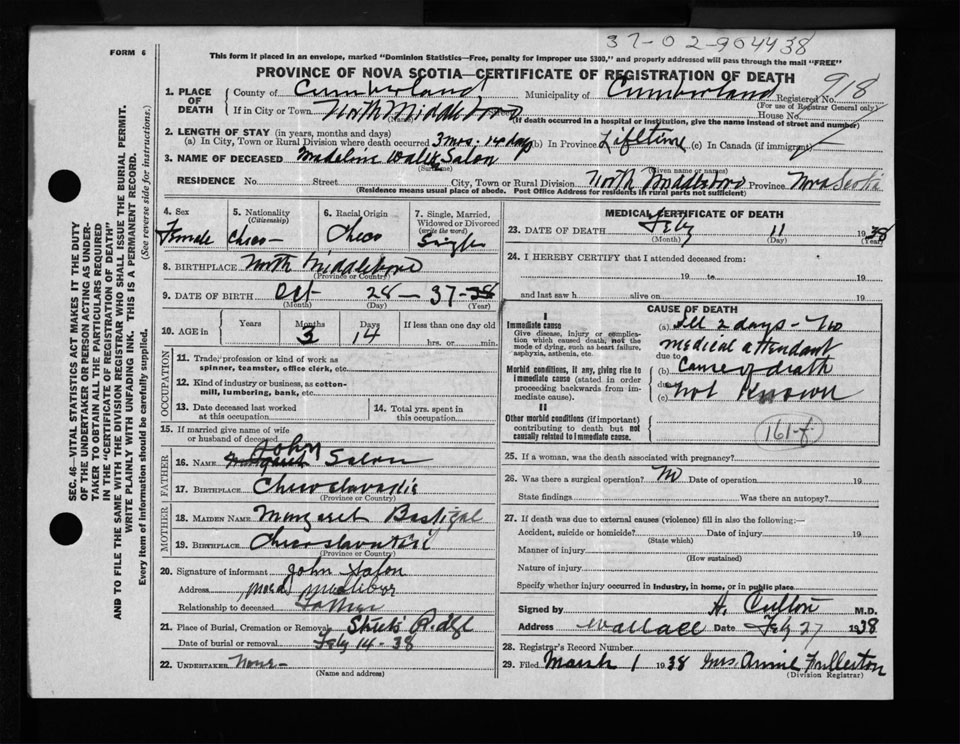 37-02-904438
FORM 6
This form if placed in an envelope, marked "Dominion Statistics—Free, penalty for improper use $300," and properly addressed will pass through the mail "FREE"
PROVINCE OF NOVA SCOTIA—CERTIFICATE OF REGISTRATION OF DEATH
918
1. PLACE OF DEATH
County of Cumberland Municipality of Cumberland Registered No.
(For use of Registrar General only)
If in City or Town North Middleboro House No.
(Name) (If death occurred in a hospital or institution, give the name instead of street and number)
2. LENGTH OF STAY (in years, months and days)
(a) In City, Town or Rural Division where death occurred 3 mos. 14 days (b) In Province Lifetime (c) In Canada (if immigrant)
3. NAME OF DECEASED Madeline Salon
(Surname) (Given name or names)
RESIDENCE No. Street City, Town or Rural Division North Middleboro Province Nova Scotia
(Residence means usual place of abode. Post Office Address for residents in rural parts not sufficient)
4. Sex Female
5. Nationality (Citizenship) Checo-
6. Racial Origin Checo
7. Single, Married, Widowed or Divorced (write the word) Single
8. BIRTHPLACE North Middleboro
(Province or Country)
9. DATE OF BIRTH Oct 28 — 37- 38
(Month) (Day) (Year)
10. AGE in Years Months 3 Days 14 If less than one day old hrs. or min.
OCCUPATION
11. Trade, profession or kind of work as spinner, teamster, office clerk, etc.
12. Kind of industry or business, as cotton-mill, lumbering, bank, etc.
13. Date deceased last worked at this occupation
14. Total yrs. spent in this occupation
15. If married give name of wife or husband of deceased
FATHER
16. NAME John Margaret Salon
17. BIRTHPLACE Checoslavakia
(Province or Country)
MOTHER
18. MAIDEN NAME Margaret
19. BIRTHPLACE
(Province or Country)
20. Signature of informant John Salon
Address
Relationship to deceased Father
21. Place of Burial, Cremation or Removal Streets Ridge
Date of burial or removal Feby 14 - 38
22. UNDERTAKER None -
(Name and address)
MEDICAL CERTIFICATE OF DEATH
23. DATE OF DEATH Feby 11 1938
(Month) (Day) (Year)
24. I HEREBY CERTIFY that I attended deceased from:
19 to 19
and last saw h alive on 19
CAUSE OF DEATH
I
Immediate cause
Give disease, injury or complication which caused death, not the mode of dying, such as heart failure, asphyxia, asthenia, etc.
Morbid conditions, if any, giving rise to immediate cause (stated in order proceeding backwards from immediate cause).
II
Other morbid conditions (if important) contributing to death but not causally related to immediate cause.
(a) Ill 2 days - No
medical attendant
due to
(b) Cause of death
(c) not Known
161-f
25. If a woman, was the death associated with pregnancy?
26. Was there a surgical operation? No Date of operation 19
State findings Was there an autopsy?
27. If death was due to external causes (violence) fill in also the following:—
Accident, suicide or homicide? Date of injury 19
(State which)
Manner of injury
(How sustained)
Nature of injury
Specify whether injury occurred in industry, in home, or in public place
Signed by M.D.
Address Wallace Date Feby 27 1938
28. Registrar's Record Number
29. Filed March 1 1938 Mrs. Annie Fullerton
(Division Registrar)
SEC. 46—VITAL STATISTICS ACT MAKES IT THE DUTY
OF THE UNDERTAKER OR PERSON ACTING AS UNDER-
TAKER TO OBTAIN ALL THE PARTICULARS REQUIRED
IN THE "CERTIFICATE OF REGISTRATION OF DEATH"
AND TO FILE THE SAME WITH THE DIVISION REGISTRAR WHO SHALL ISSUE THE BURIAL PERMIT.
WRITE PLAINLY WITH UNFADING INK. THIS IS A PERMANENT RECORD.
Every item of information should be carefully supplied. (See reverse side for instructions.)